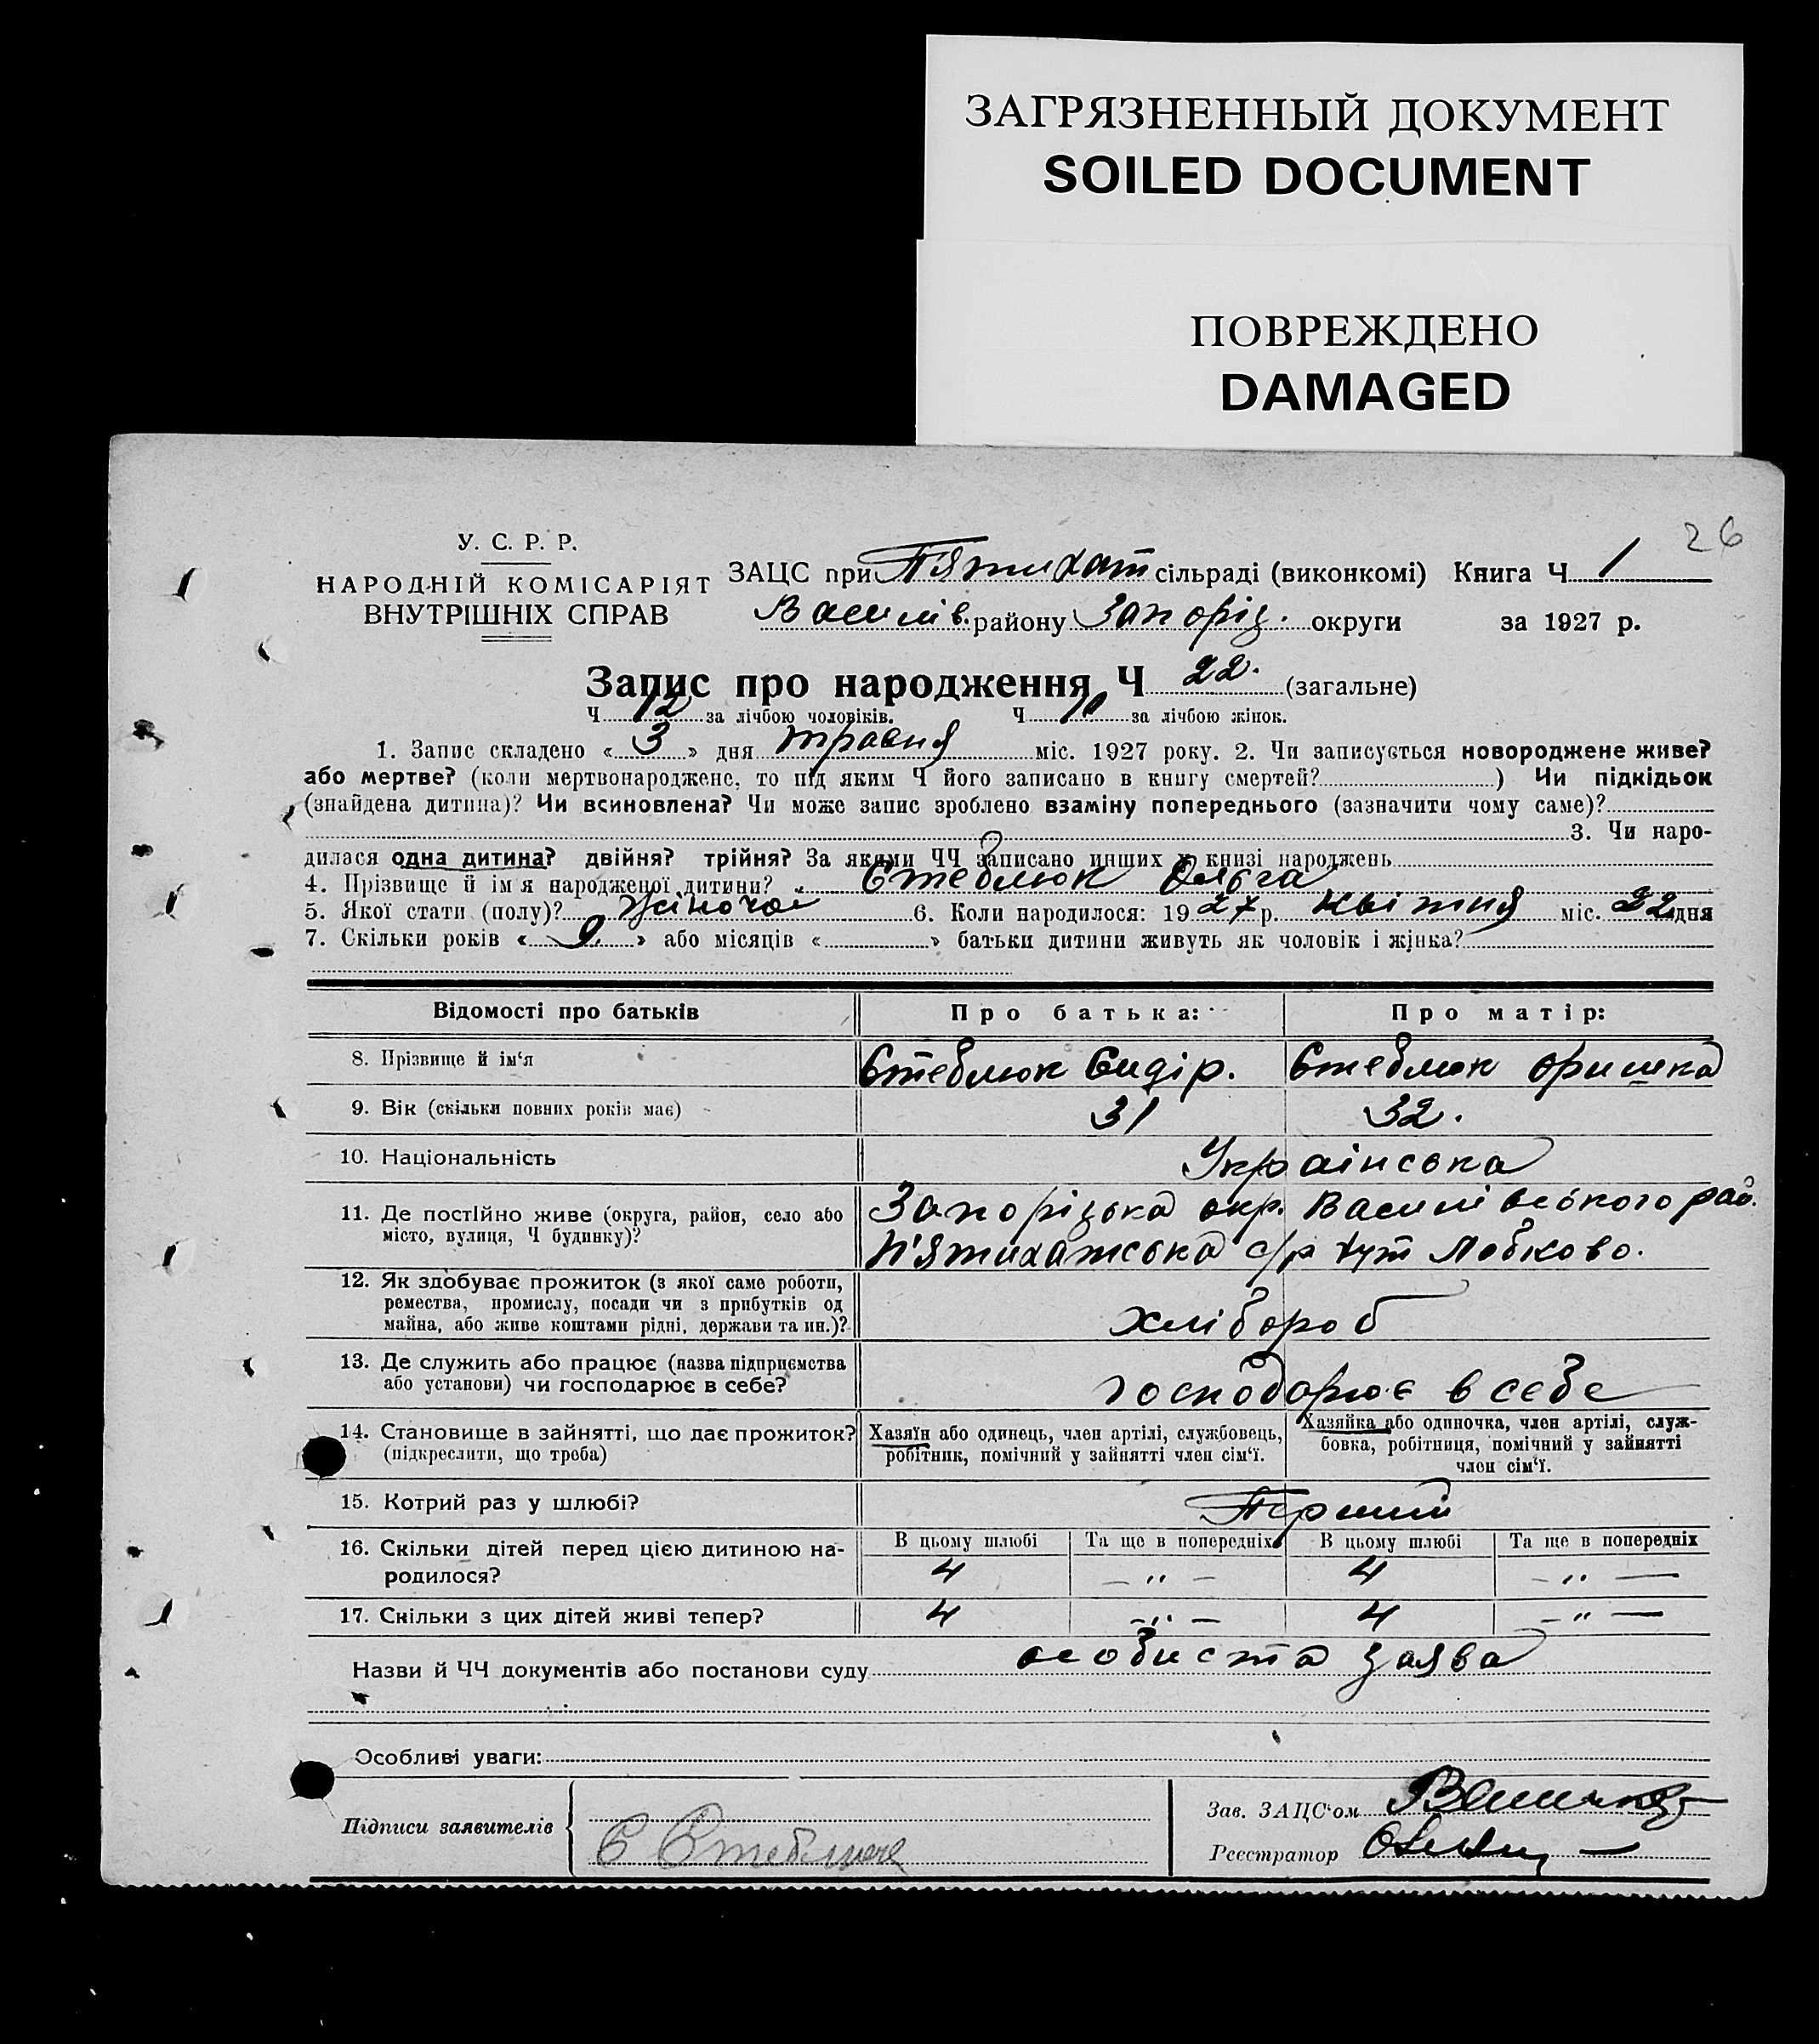 ЗАГРЯЗНЕННЫЙ ДОКУМЕНТ
SOILED DOCUMENT
ПОВРЕЖДЕНО
DAMAGED
26
У. С. Р. Р.
НАРОДНІЙ КОМІСАРІЯТ
ВНУТРІШНІХ СПРАВ
ЗАЦС при Пятихат сільраді (виконкомі) Книга Ч 1
Василів. району Запоріз. округи за 1927 р.
Запис про народження Ч 22. (загальне)
Ч 12 за лічбою чоловіків. Ч 10 за лічбою жінок.
1. Запис складено « 3 » дня травня міс. 1927 року. 2. Чи записується новороджене живе?
або мертве? (коли мертвонароджене, то під яким Ч його записано в книгу смертей? ) Чи підкідьок
(знайдена дитина)? Чи всиновлена? Чи може запис зроблено взаміну попереднього (зазначити чому саме)?
3. Чи наро-
дилася одна дитина? двійня? трійня? За якими ЧЧ записано инших у книзі народжень
4. Прізвище й ім'я народженої дитини? Стеблюк Ольга
5. Якої стати (полу)? Жіноча 6. Коли народилося: 1927 р. квітня міс. 22 дня
7. Скільки років « 9. » або місяців « » батьки дитини живуть як чоловік і жінка?
Відомості про батьків Про батька: Про матір:
8. Прізвище й ім‘я Стеблюк Сидір. Стеблюк Оришка
9. Вік (скільки повних років має) 31 32.
10. Національність Українська
11. Де постійно живе (округа, район, село або Запоріцька окр. Василівського рай.
місто, вулиця, Ч будинку)? П'ятихатська с/р хут Лобково.
12. Як здобуває прожиток (з якої саме роботи,
ремества, промислу, посади чи з прибутків од
майна, або живе коштами рідні, держави та ин.)? хлібороб
13. Де служить або працює (назва підприємства
або установи) чи господарює в себе? господарює в себе
14. Становище в зайнятті, що дає прожиток? Хазяїн або одинець, член артілі, службовець, Хазяйка або одиночка, член артілі, служ-
(підкреслити, що треба) робітник, помічний у зайнятті член сім‘ї. бовка, робітниця, помічний у зайнятті
член сім‘ї.
15. Котрий раз у шлюбі? Перший
16. Скільки дітей перед цією дитиною на- В цьому шлюбі Та ще в попередніх В цьому шлюбі Та ще в попередніх
родилося? 4 — „ — 4 — „ —
17. Скільки з цих дітей живі тепер? 4 — „ — 4 — „ —
Назви й ЧЧ документів або постанови суду особиста заява
Особливі уваги:
Підписи заявителів С Стеблюк
Зав. ЗАЦС‘ом
Реєстратор